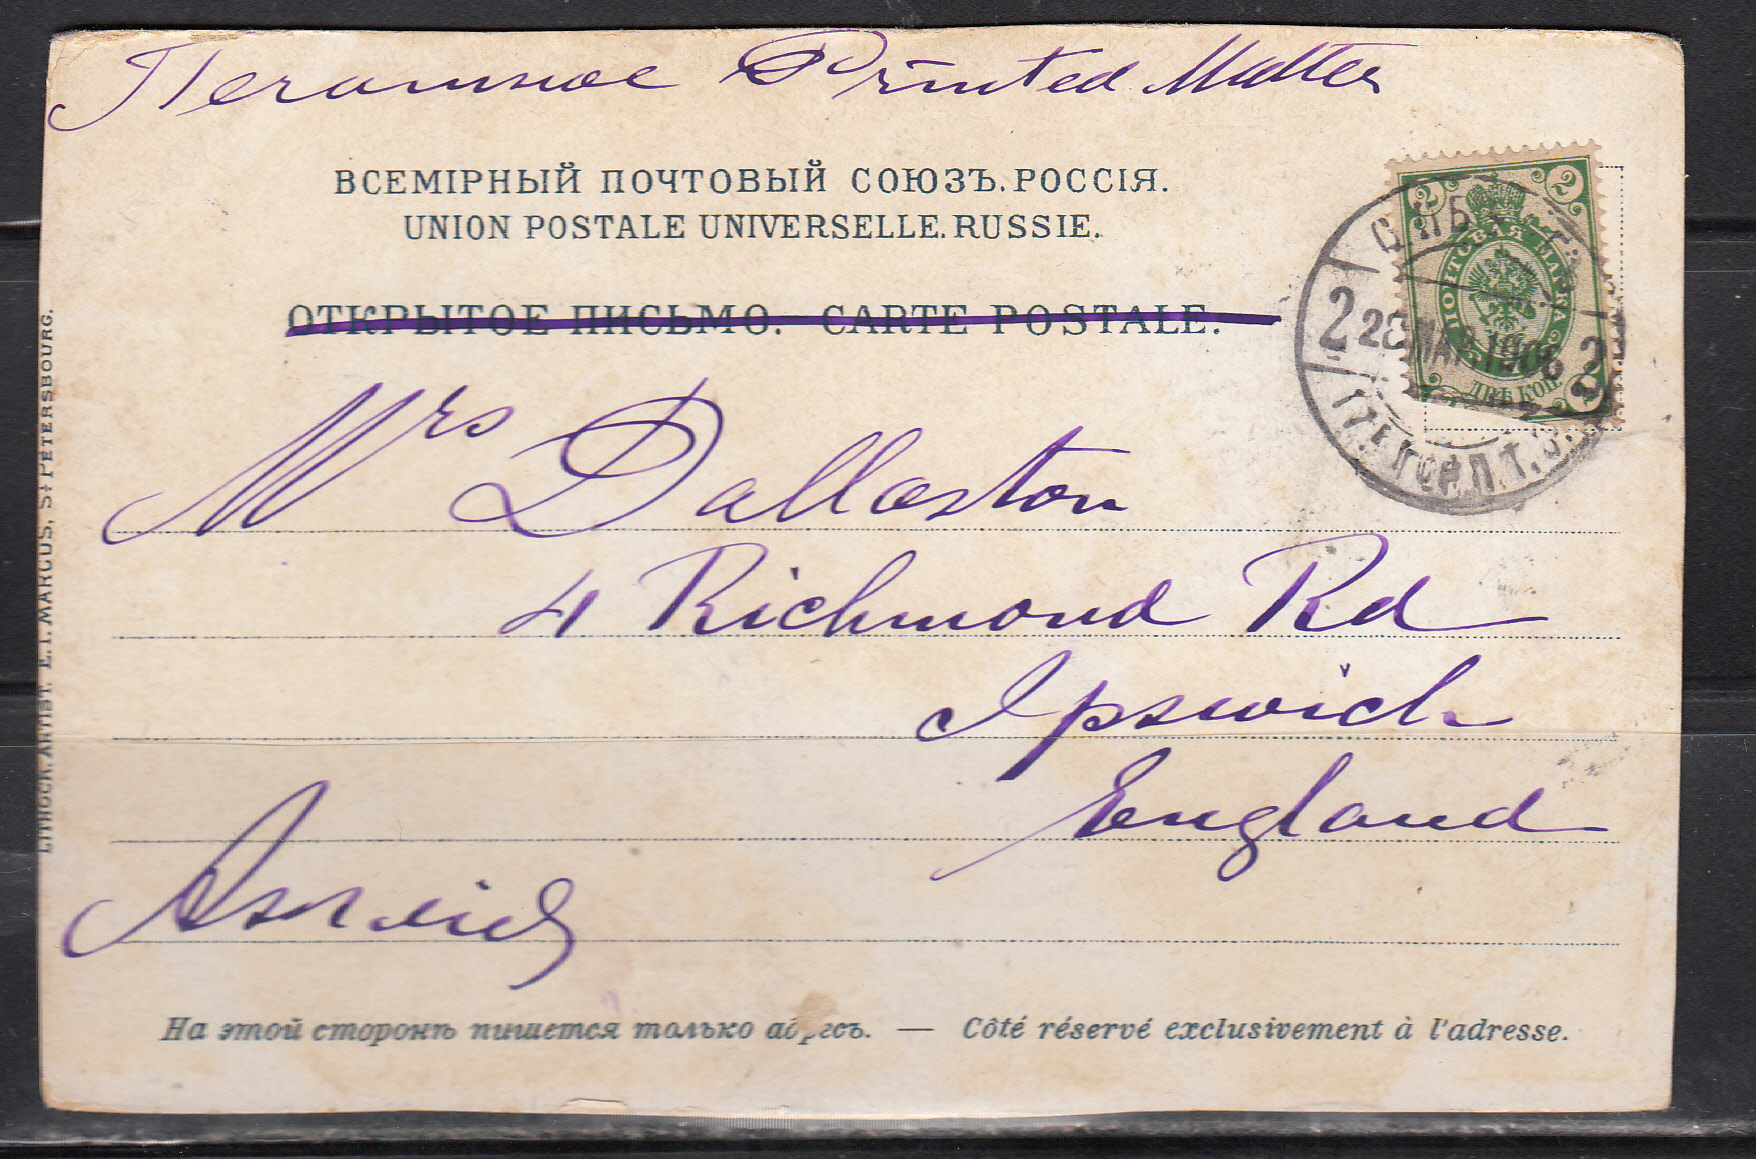 Печатное Printed Matter
ВСЕМІРНЫЙ ПОЧТОВЫЙ СОЮЗЪ. РОССІЯ.
UNION POSTALE UNIVERSELLE. RUSSIE.
ОТКРЫТОЕ ПИСЬМО. — CARTE POSTALE.
2 2
ПОЧТОВАЯ МАРКА
ДВѢ КОП.
С П Б
2 28 МАР 1906 2
ГОР. П. Т.
Mrs Dallaston
4 Richmond Rd
Ipswich
England
Англія
На этой сторонѣ пишется только адресъ. — Côté réservé exclusivement à l'adresse.
LITHOGR. ARTIST. E. I. MARCUS, St PETERSBOURG.